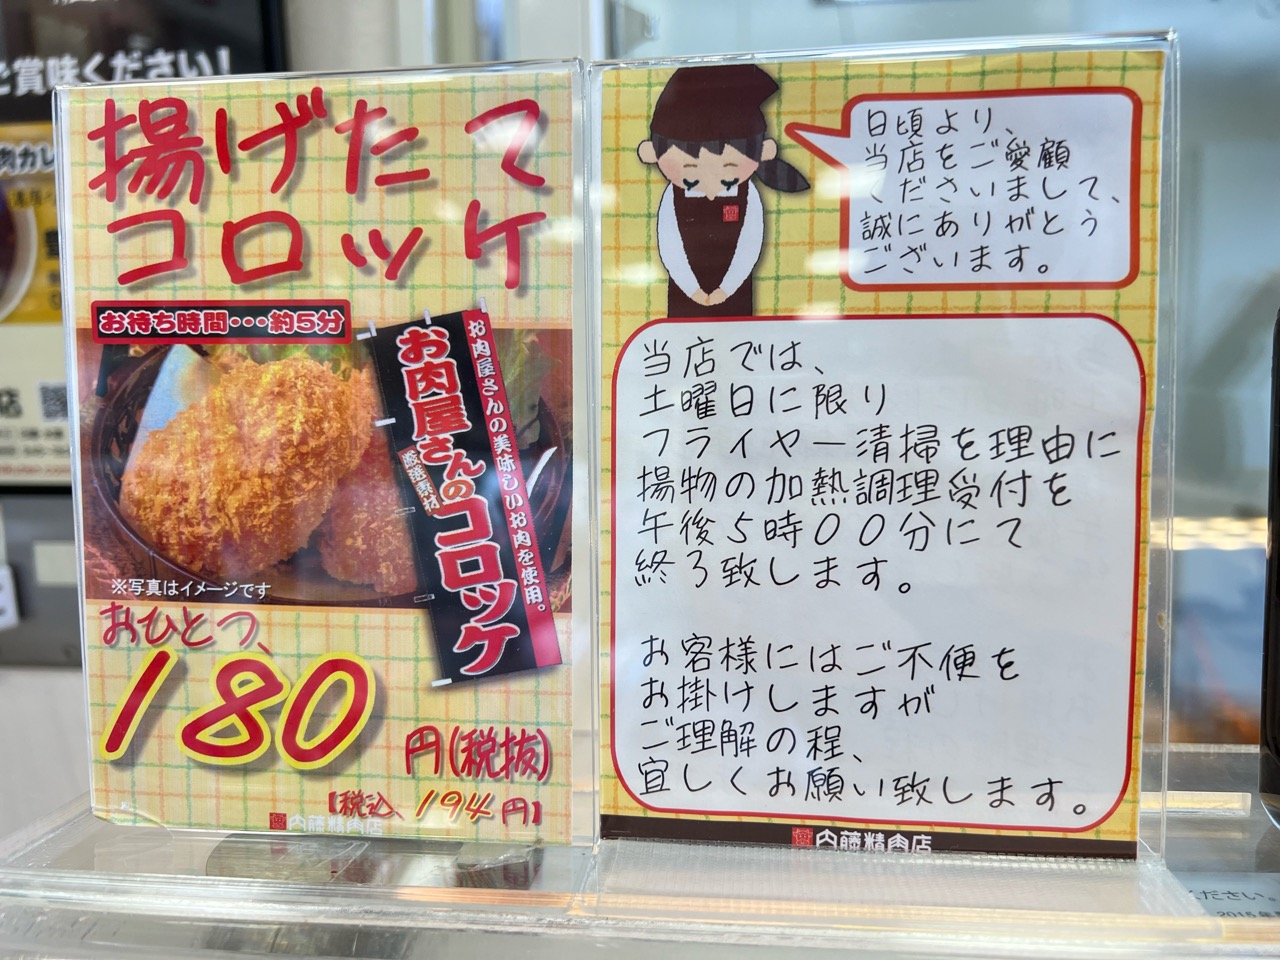 ご賞味ください!
揚げたて
コロッケ
お待ち時間・・・約5分
お肉屋さんの美味しいお肉を使用。
お肉屋さんのコロッケ
厳選素材
※写真はイメージです
おひとつ、
180円(税抜)
【税込、194円】
内藤精肉店
日頃より、
当店をご愛顧
くださいまして、
誠にありがとう
ございます。
当店では、
土曜日に限り
フライヤー清掃を理由に
揚物の加熱調理受付を
午後5時00分にて
終了致します。
お客様にはご不便を
お掛けしますが
ご理解の程、
宜しくお願い致します。
内藤精肉店
ください。
2015年